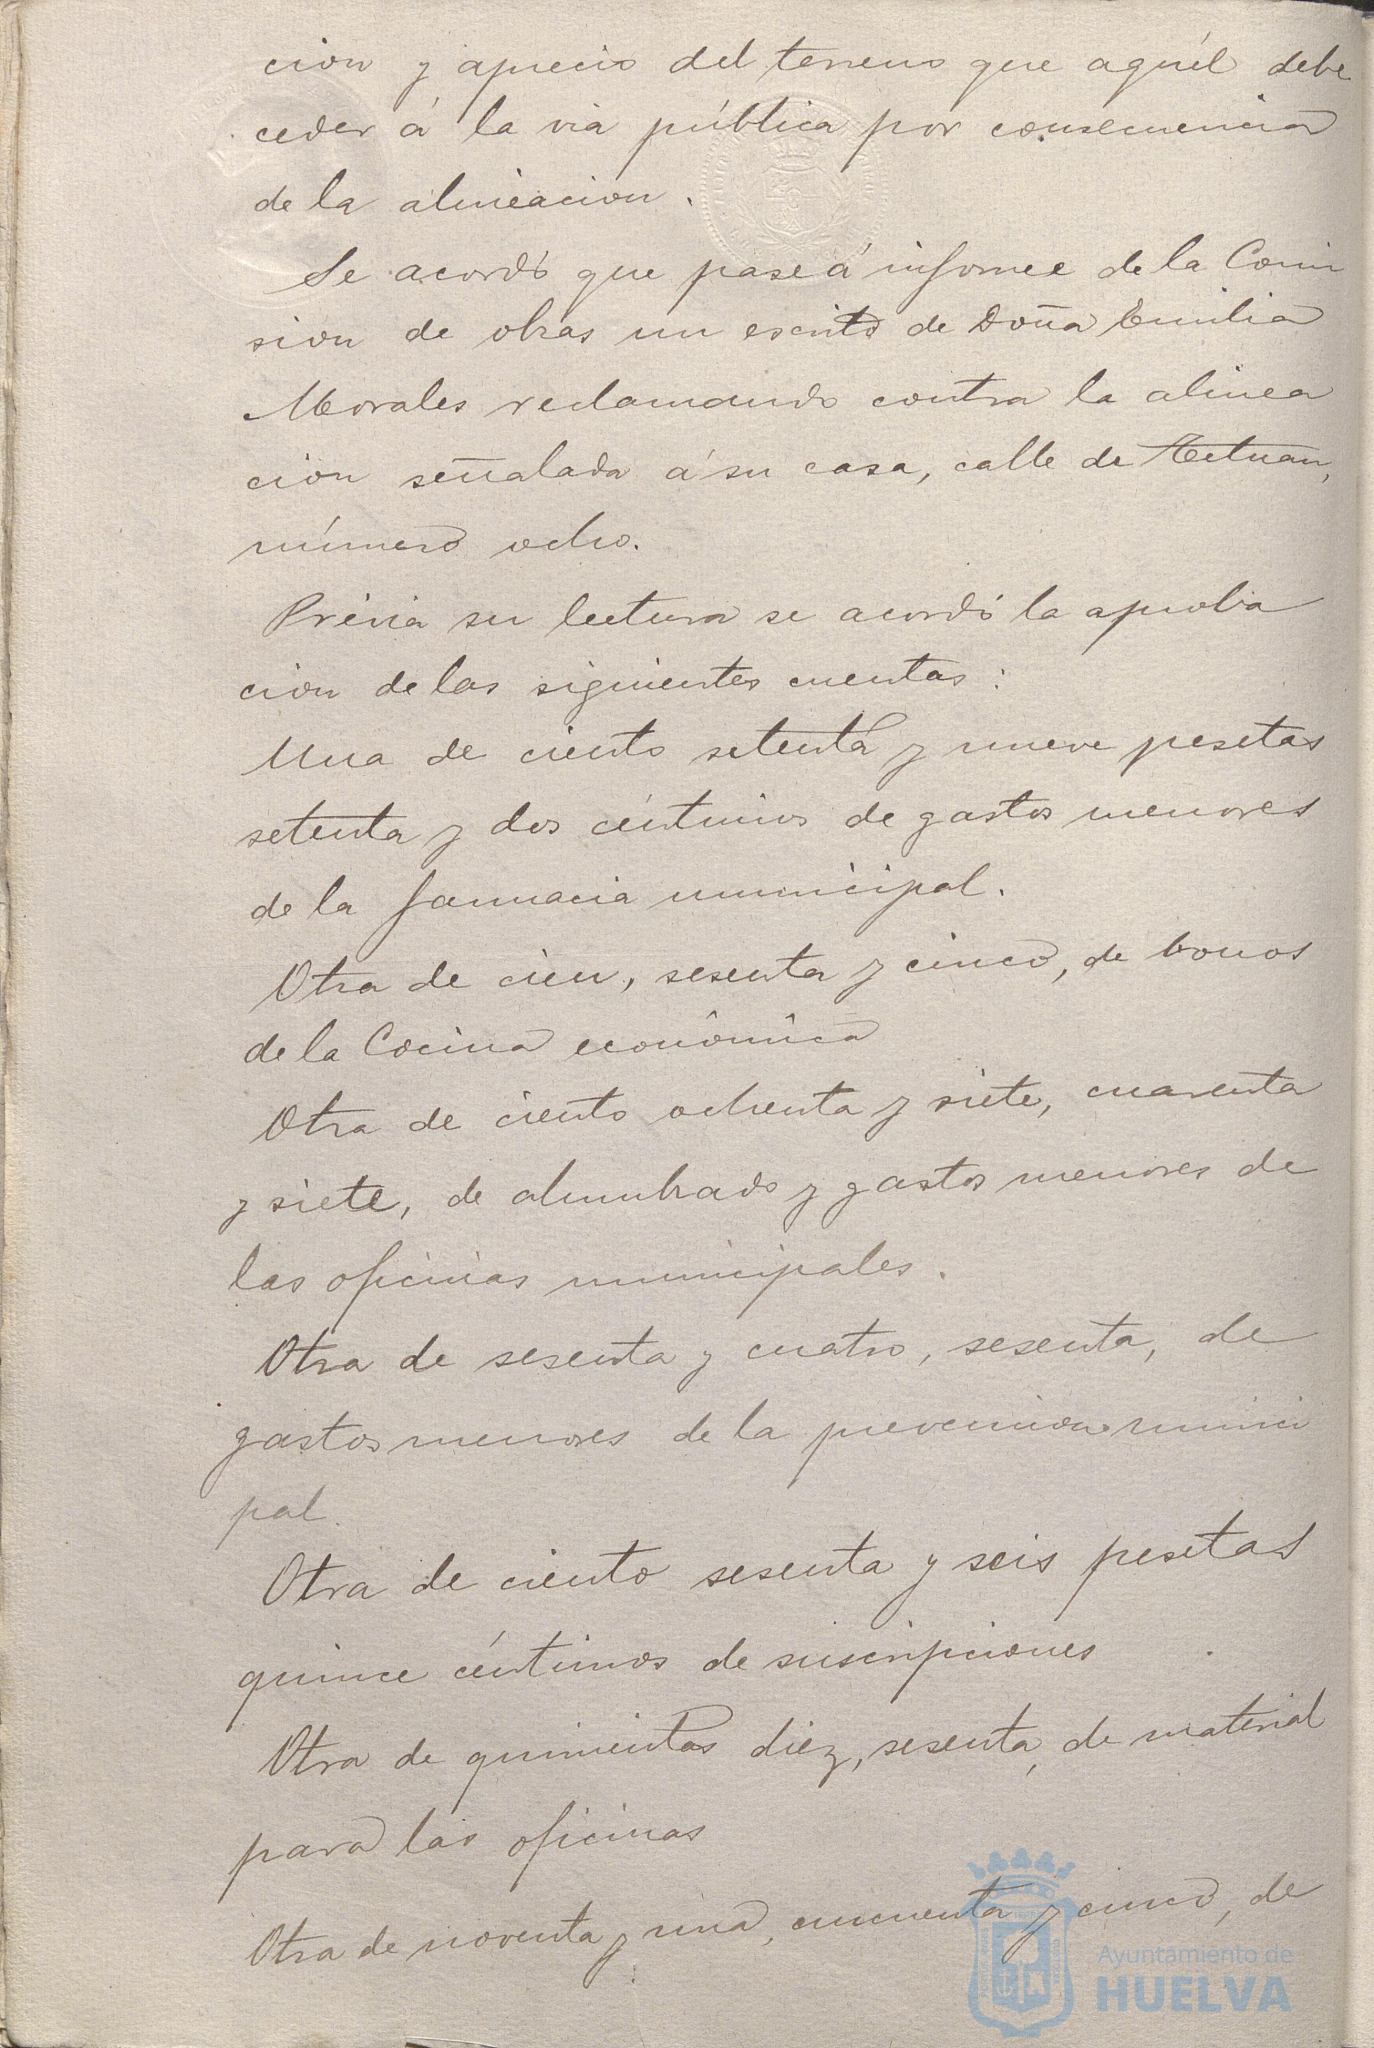 cion y aprecio del terreno que aquél debe
ceder á la via pública por consecuencia
de la alineacion.
Se acordó que pase á informe de la Comi
sion de obras un escrito de Doña Emilia
Morales reclamando contra la alinea
cion señalada á su casa, calle de Tetuan,
número ocho.
Prévia su lectura se acordó la aproba
cion de las siguientes cuentas:
Una de ciento setenta y nueve pesetas
setenta y dos céntimos de gastos menores
de la farmacia municipal.
Otra de cien, sesenta y cinco, de bonos
de la Cocina económica
Otra de ciento ochenta y siete, cuarenta
y siete, de alumbrado y gastos menores de
las oficinas municipales.
Otra de sesenta y cuatro, sesenta, de
gastos menores de la prevencion munici
pal.
Otra de ciento sesenta y seis pesetas
quince céntimos de suscripciones
Otra de quinientas diez, sesenta, de material
para las oficinas
Otra de noventa y una, cincuenta y cinco, de
Ayuntamiento de
HUELVA